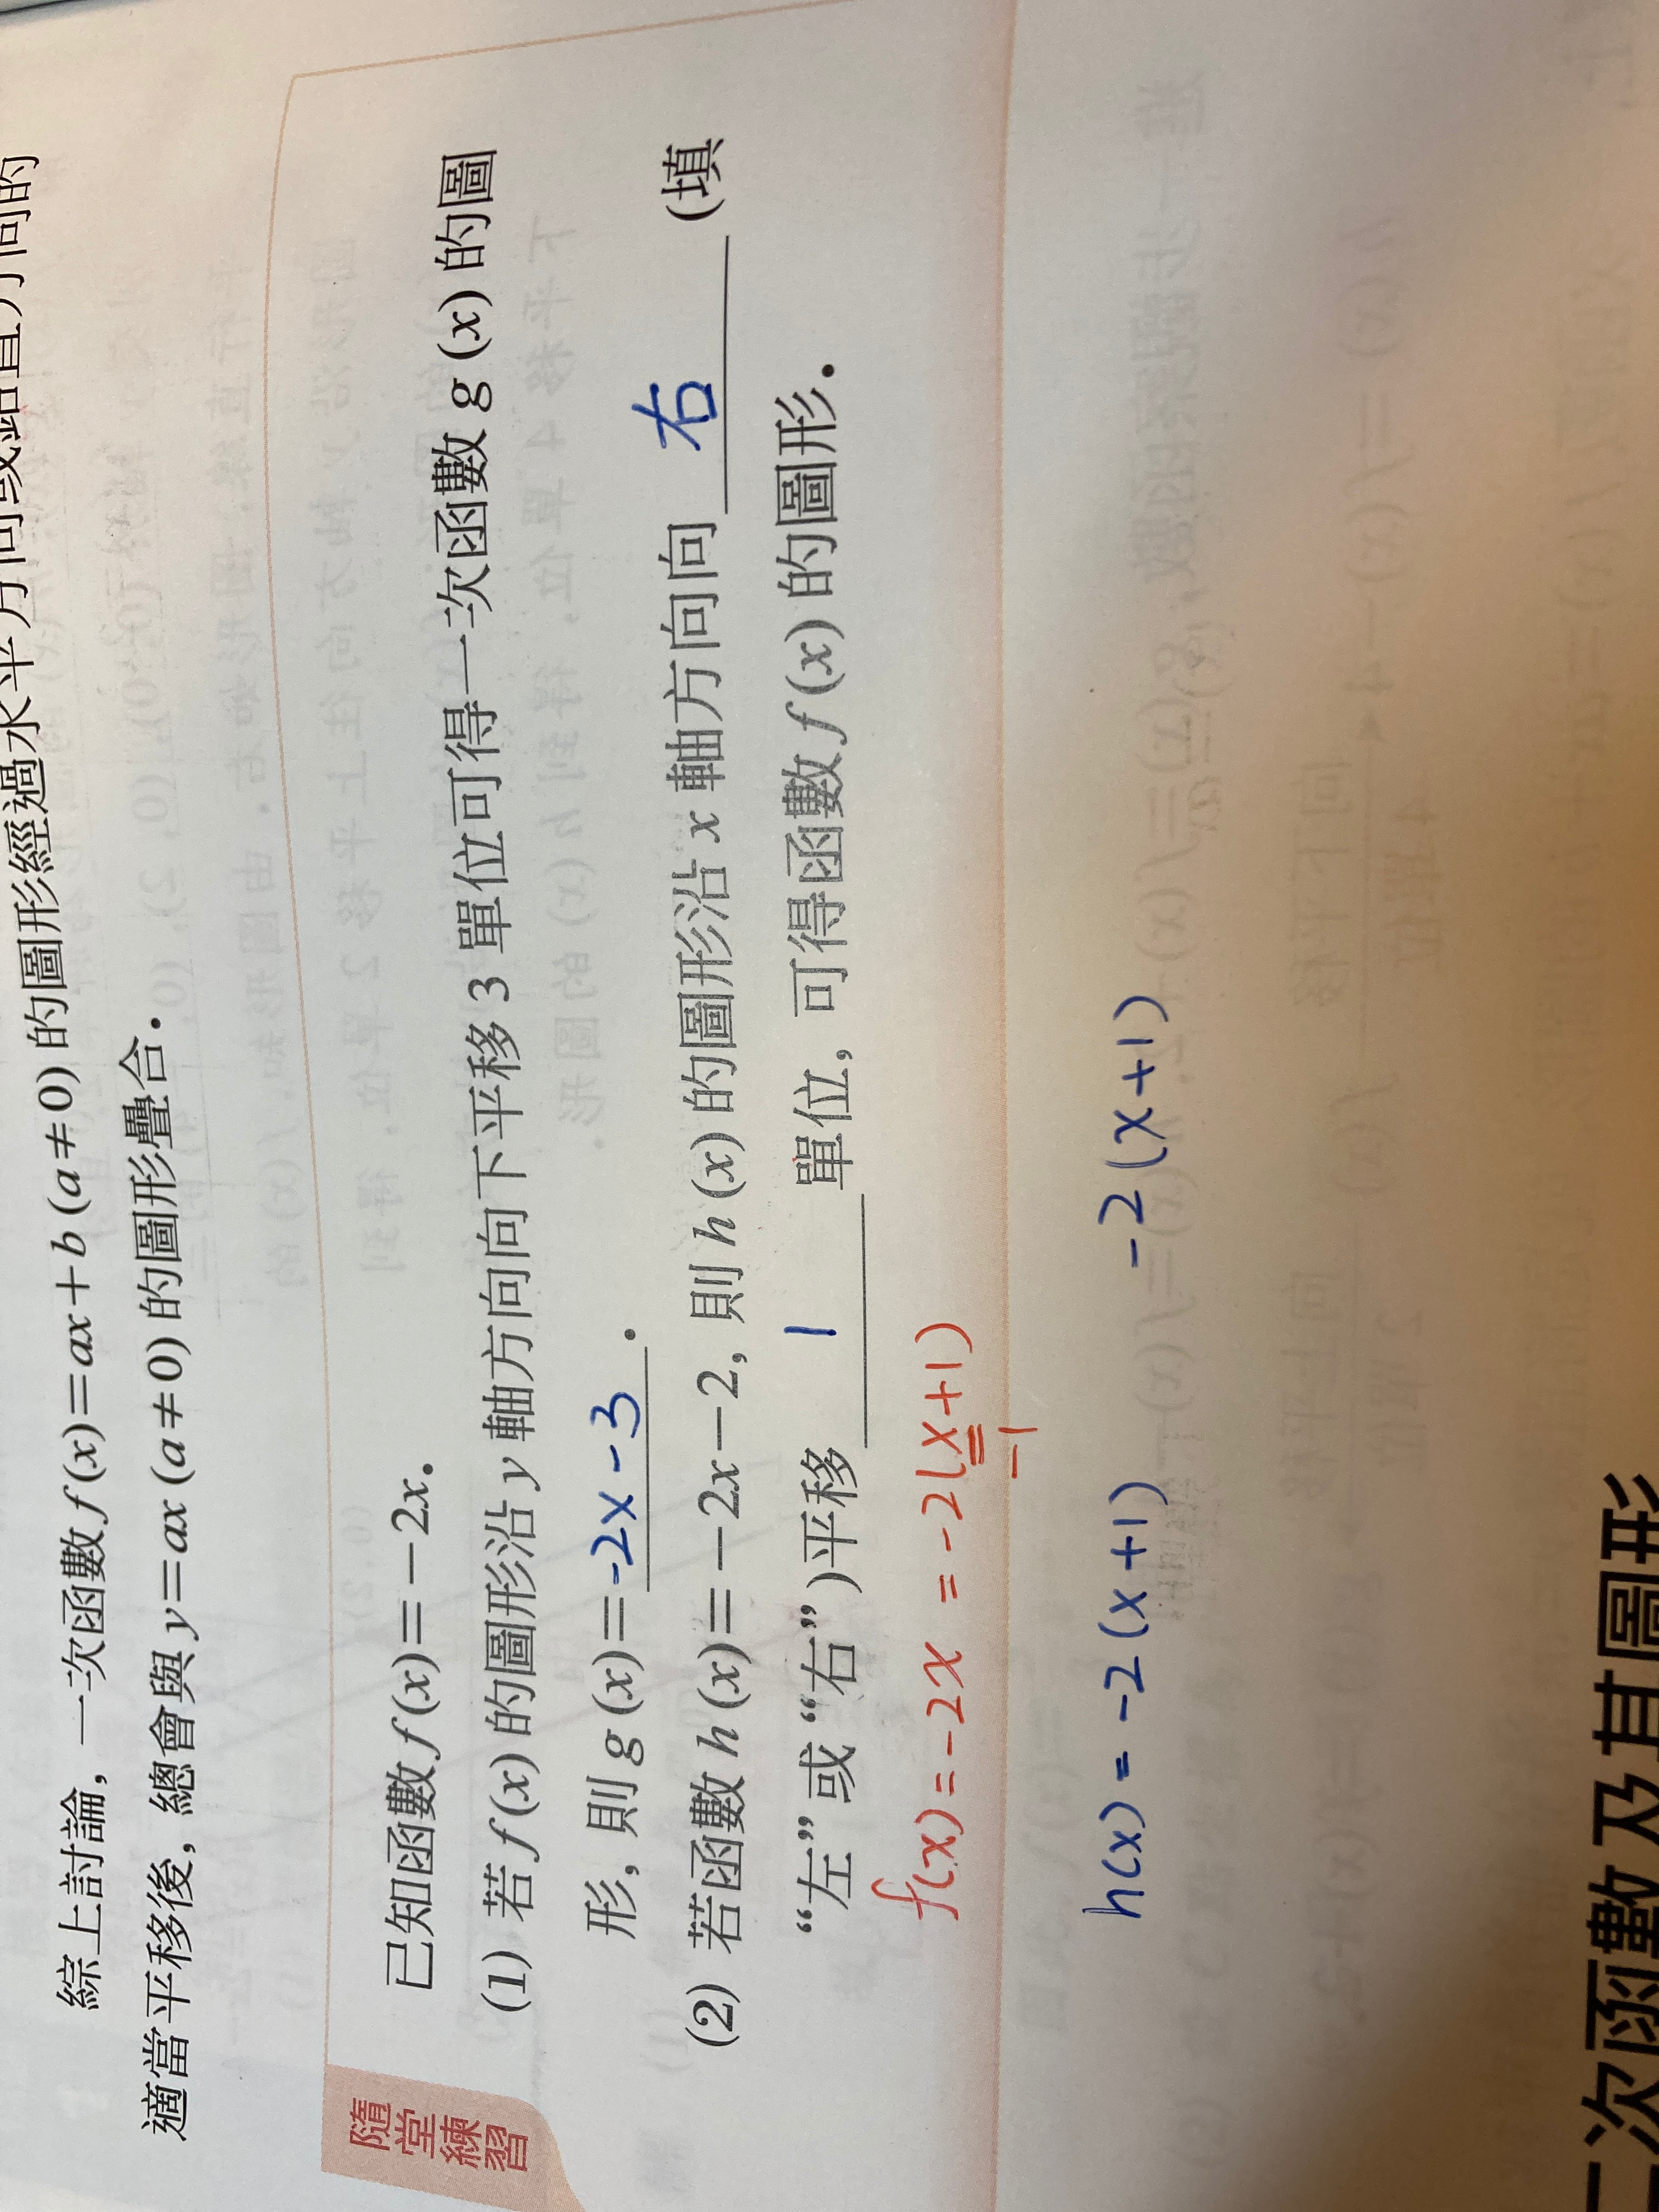 綜上討論，一次函數 f(x)=ax+b (a≠0) 的圖形經過水平方向或鉛直方向的
適當平移後，總會與 y=ax (a≠0) 的圖形疊合．
隨堂練習
已知函數 f(x)=-2x．
(1) 若 f(x) 的圖形沿 y 軸方向向下平移 3 單位可得一次函數 g(x) 的圖
形，則 g(x)=-2x-3．
(2) 若函數 h(x)=-2x-2，則 h(x) 的圖形沿 x 軸方向向 右 (填
“左”或“右”)平移 1 單位，可得函數 f(x) 的圖形．
f(x)=-2x = -2(x+1)
-1
h(x)=-2(x+1) -2(x+1)
次函數及其圖形